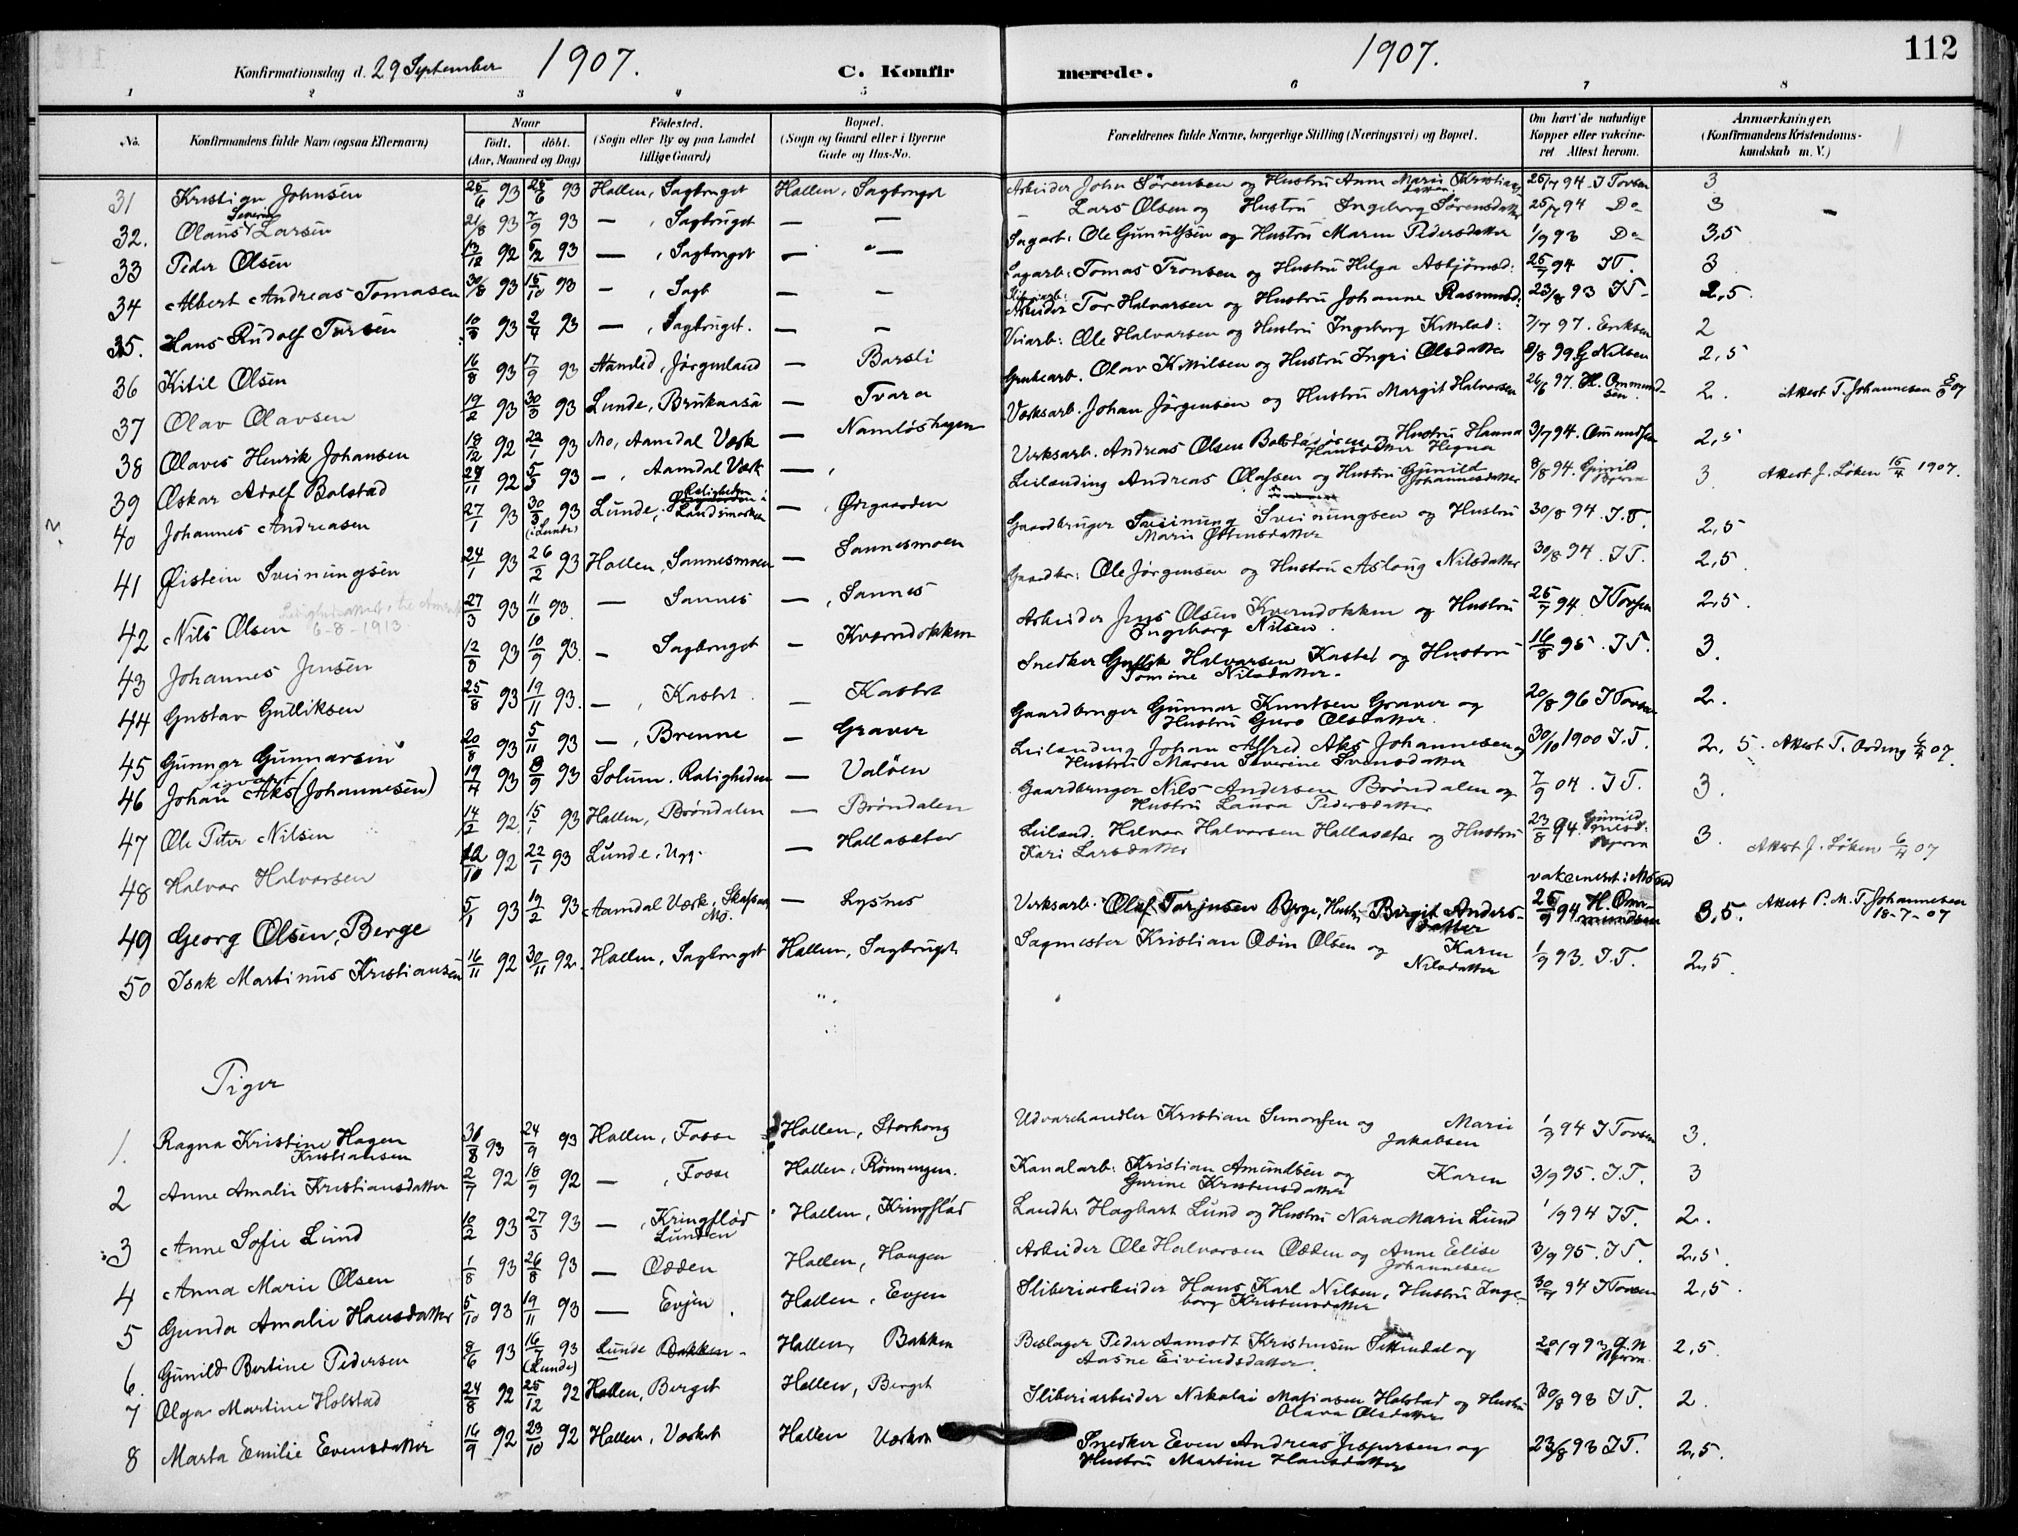 112
Konfirmationsdag d. 29 September 1907. C. Konfir merede. 1907.
1 2 3 4 5 6 7 8
No. Konfirmandens fulde Navn (ogsaa Efternavn) Naar født. døbt. (Aar, Maaned og Dag) Fødested. (Sogn eller By og paa Landet tillige Gaard) Bopæl. (Sogn og Gaard eller i Byerne Gade og Hus-No. Forældrenes fulde Navne, borgerlige Stilling (Næringsvei) og Bopæl. Om havt de naturlige Kopper eller vakcineret. Attest herom. Anmærkninger. (Konfirmandens Kristendomskundskab m. V.)
31 Kristian Johnsen 25/6 93 25/6 93 Hollen, Sagbruget Hollen, Sagbruget Arbeider John Sørensen og Hustru Anne Marie Kristiansdatter 25/7 94. I Torsen 3
32. Olaus Severin Larsen 21/8 93 7/9 93 — , Sagbruget — — — Lars Olsen og Hustru Ingeborg Sørensdatter 25/7 94 Do 3
33 Peder Olsen 13/12 92 6/2 93 — , Sagbruget — — Sagarb: Ole Gunulfsen og Hustru Maren Pedersdatter 1/9 93 Do 3,5
34 Albert Andreas Tomasen 30/8 93 15/10 93 — , Sagb — — Sagarb: Tomas Tronsen og Hustru Helga Asbjørnsd: 25/7 94 IT. 3
35. Hans Rudolf Torsen 10/3 93 2/4 93 — , Sagbruget. — — Arbeider Tor Halvorsen og Hustru Johanne Rasmusd. 23/8 93 IT 2,5.
36 Kitil Olsen 16/8 93 17/9 93 Namlid, Jørgenland — Barsli Veiarb: Ole Halvorsen og Hustru Ingeborg Kittilsd: 7/7 97. Eriksen 2
37 Olav Olavsen 19/2 93 30/3 93 Lunde, Brukaasa — Tvara Grubearb. Olav Kittilsen og Hustru Ingri Olsdatter 8/8 99 G Nilsen 2,5
38 Olaves Henrik Johansen 18/12 92 22/1 93 Mo, Aamdal Værk — Namløshagen Værksarb. Johan Jørgensen og Hustru Margit Halvorsen 26/6 97. H. Ommundsen 2. Attest T. Johannesen
39 Oskar Adolf Bolstad 29/11 92 5/3 93 — , Aamdal Værk — , Verksarb. Andreas Olsen Hustru Hanna Hansdatter Hegna 3/7 94. Omundsen 2,5
40 Johannes Andreasen 27/1 93 30/3 93 (Lunde) Lunde, Landsmarken — , Ørgaarden Leilænding Andreas Olafsen og Hustru Gunild Johannesdatter 8/8 94. Gunild Bjerva 3. Attest J. Løken 15/4 1907.
41 Øistein Sveinungsen 24/1 93 26/2 93 Hollen, Sannesmoen — Sannesmoen Gaardbruger Sveinung Sveinungsen og Hustru Marie Østensdatter 30/8 94. I.T. 2,5
42 Nils Olsen 6-8-1913. 27/3 93 11/6 93. — Sannes — , Sannes Gaardbr: Ole Jørgensen og Hustru Aslaug Nilsdatter 30/8 94. IT. 2,5.
43 Johannes Jensen 12/8 93 10/9 93. — Sagbruget — Kværndokken Arbeider Jens Olsen Kverndokken og Hustru Ingeborg Nilsen. 25/7 94 I Torsen 2,5.
44 Gustav Gulliksen 25/8 93 19/11 93. — , Kastet — Kastet Snedker Gullik Halvorsen Kastet og Hustru Tomine Nilsdatter. 16/8 95. IT. 3.
45 Gunnar Gunnarsen 20/8 93 5/11 93 — , Brenne — Graver Gaardbruger Gunnar Knutsen Graver og Hustru Guro Olsdatter. 20/8 96 I Torsen 2.
46 Johan Sigvart Aks (Johannesen) 19/4 93 8/9 93 Solum. Roligheden — Valøen Leilænding Johan Alfred Aks Johannesen og Hustru Maren Severine Svensdatter 30/10 1900 I.T. 2,5. Attest T. Ording 6/4 07.
47 Ole Peter Nilsen 14/2 92 15/1 93 Hollen, Brøndalen — Brøndalen Gaardbruger Nils Andersen Brøndalen og Hustru Laura Pedersdatter 7/9 04. IT. 3.
48 Halvor Halvorsen 12/10 92 22/1 93 Lunde, Ugg. — Hallasæter Leilænd. Halvor Halvorsen Hallasæter og Hustru Kari Larsdatter 23/8 94. Gunild Nilsd. Bjerva 3. Attest J. Løken 6/4 07
49 Georg Olsen, Berge 5/1 93 19/2 93 Aamdal Værk, Skafsaa Mo. — Lysnes Verksarb. Olaf Torjusen Berge, Hustr. Birgit Andersdatter vakcineret i Mosed 25/9 94 H. Ommundsen 3,5. Attest P. M. T. Johannesen 18-7-07
50 Isak Martinus Kristiansen 16/11 92 30/11 92. Hollen, Sagbruget Hollen, Sagbruget. Sagmester Kristian Odin Olsen og Karen Nilsdatter 1/9 93. I.T. 2,5.
Piger
1. Ragna Kristine Hagen Kristiansen 31/8 93 24/9 93 Hollen, Fosse Hollen, Storhaug Udvarehandler Kristian Simonsen og Marie Jakobsen 1/9 94 I Torsen 3.
2 Anne Amalie Kristiansdatter 2/7 92 18/9 92 — , Fosse Hollen, Rønningen. Kanalarb: Kristian Amundsen og Karen Gurine Kristensdatter 3/9 95. I.T. 3
3 Anne Sofie Lund 10/2 93 27/3 93 — , Kringflød Lunden Hollen, Kringflød Landh. Hagbart Lund og Hustru Nara Marie Lund 1/9 94 IT. 2.
4 Anna Marie Olsen 1/8 93 26/8 93 — Odden Hollen, Haugen Arbeider Ole Halvorsen Odden og Anne Eelise Johannesen 3/9 95. I T. 2,5.
5 Gunda Amalie Hansdatter 5/10 93 19/11 93 — Evjen. Hollen, Evjen Sliberiarbeider Hans Karl Nilsen, Hustru Ingeborg Kristensdatter 30/7 94 I Torsen 2,5.
6. Gunild Bertine Pedersen 8/6 93 16/7 93 (Lunde) Lunde Bakken. Hollen, Bakken Beslager Peder Aamodt Kristensen og Aasne Eivindsdatter. G.N Bjerva. 2,5.
7 Olga Martine Holstad 24/8 92 25/12 92 Hollen, Berget Hollen, Berget Sliberiarbeider Nikolai Matiasen Holstad og Hustru Olava Olsdatter 30/8 93 IT. 2.
8 Marta Emilie Evensdatter 16/9 92 23/10 92 Hollen, Værket Hollen Værket Snedker Even Andreas Jespersen og Hustru Martine Hansdatter 23/8 93 IT. 2,5.